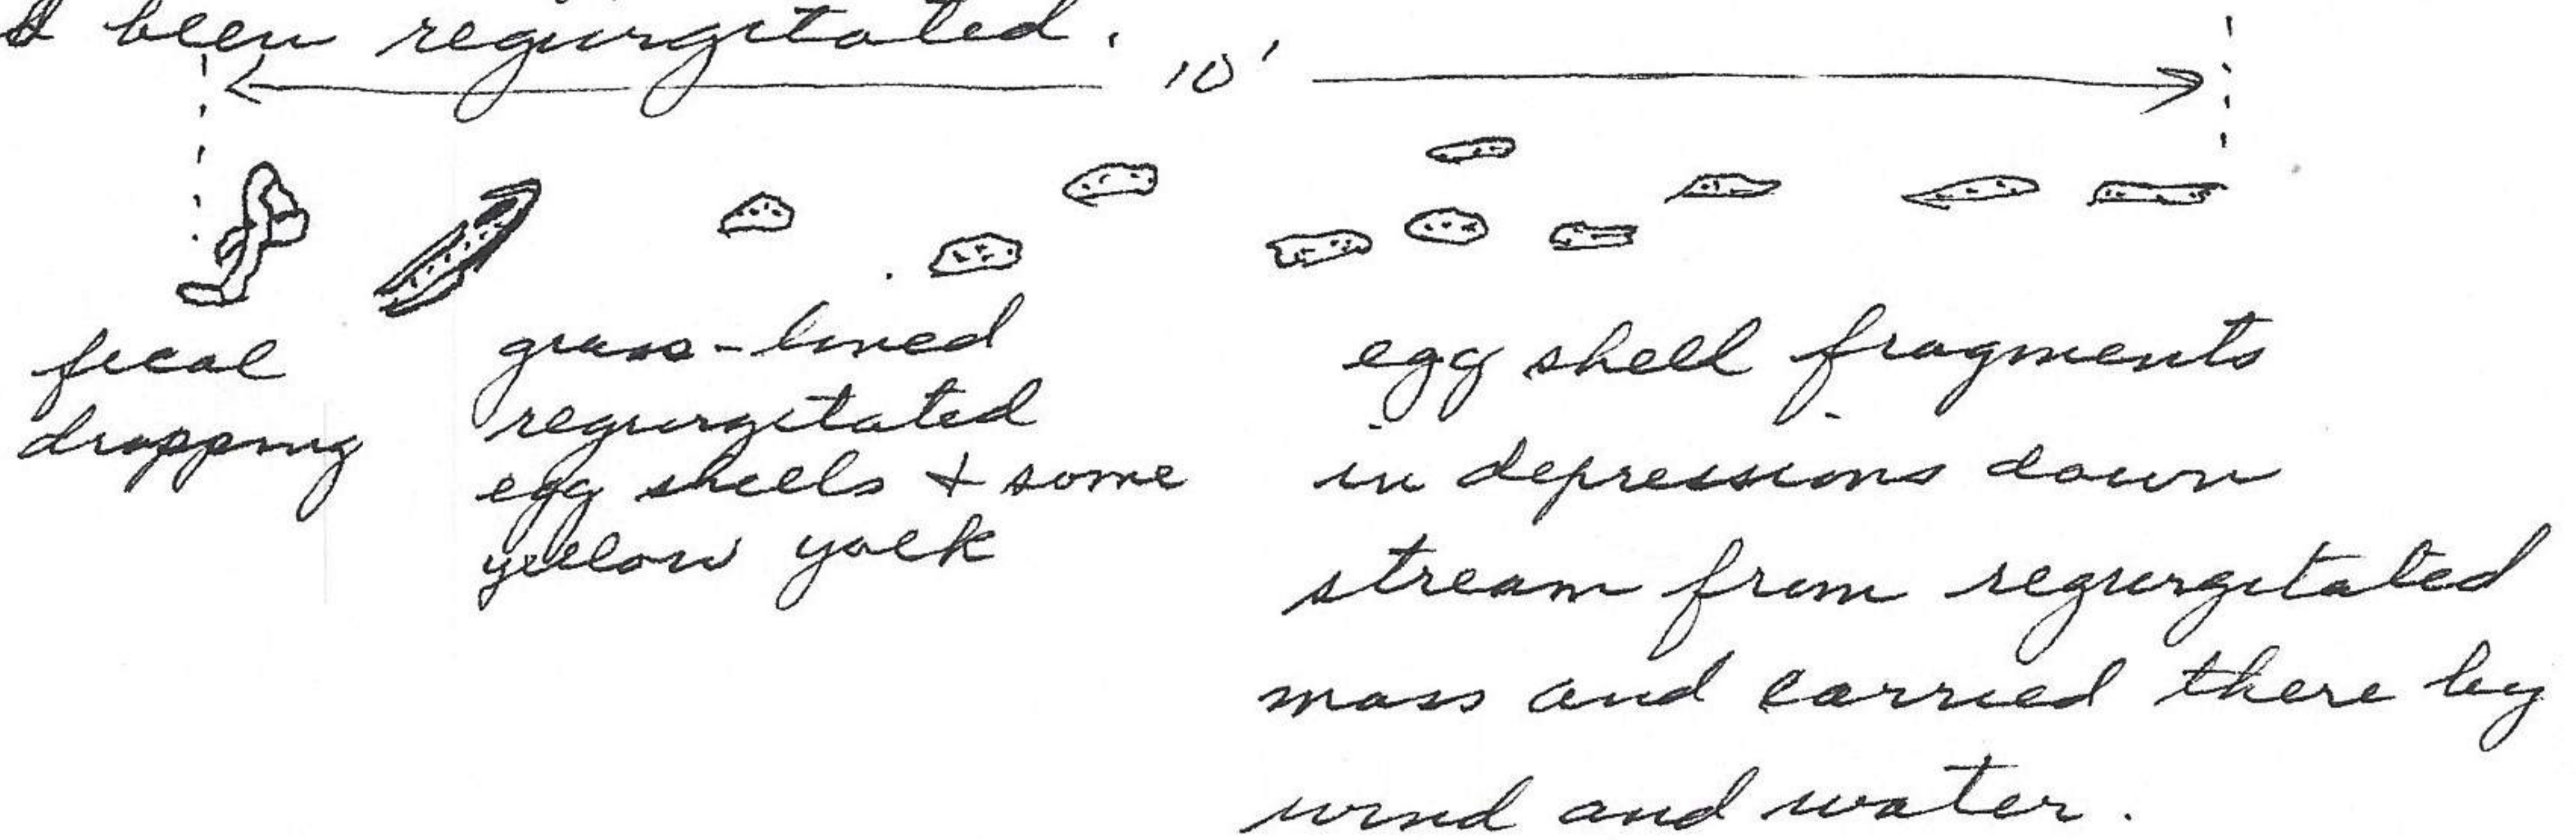 been regurgitated.
10'
fecal
dropping
grass-lined
regurgitated
egg shells + some
yellow yolk
egg shell fragments
in depressions down
stream from regurgitated
mass and carried there by
wind and water.